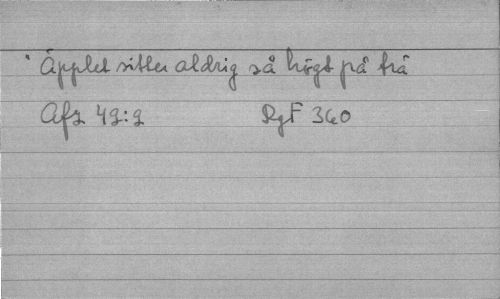 Äpplet sitter aldrig så högt på trä
Afz 49:9 RgF 360